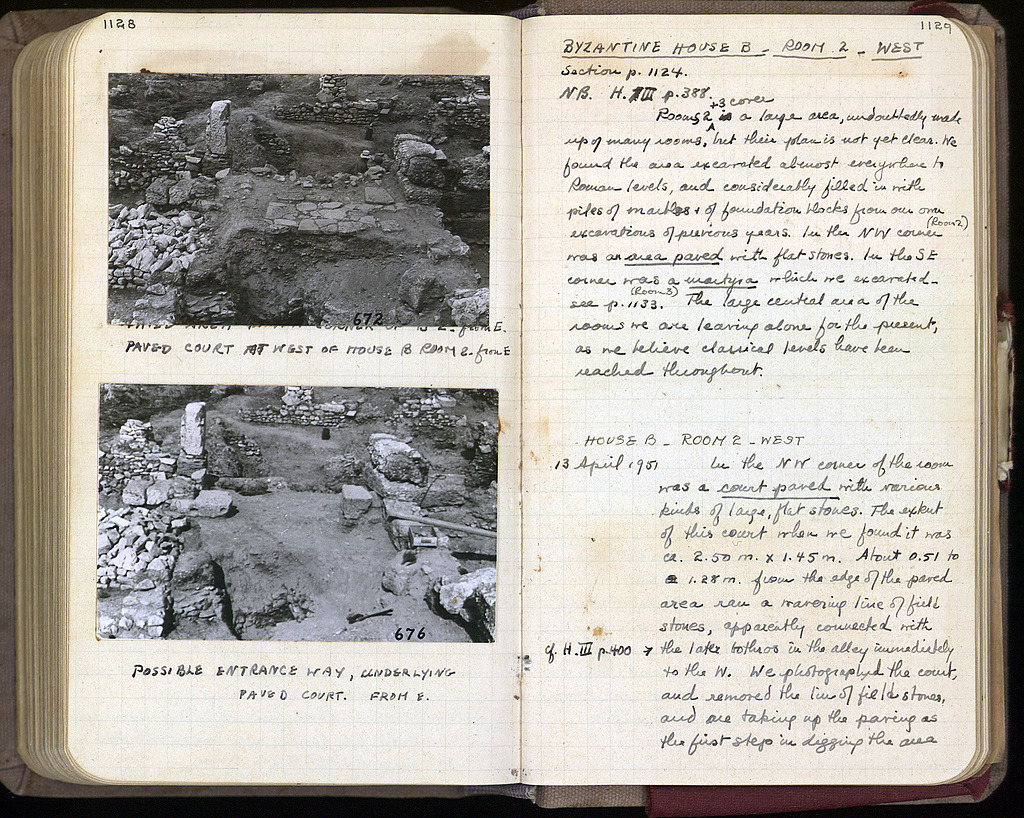 1128
672
PAVED AREA IN NW CORNER OF B 2 - from E.
PAVED COURT AT WEST OF HOUSE B ROOM 2. from E
676
POSSIBLE ENTRANCE WAY, UNDERLYING
PAVED COURT. FROM E.
1129
BYZANTINE HOUSE B - ROOM 2 - WEST
Section p. 1124.
NB. H. III p. 388.
+3 cover
Rooms 2 a large area, undoubtedly made
up of many rooms, but their plan is not yet clear. We
found the area excavated almost everywhere to
Roman levels, and considerably filled in with
piles of marbles + of foundation blocks from our own
excavations of previous years. In the NW corner
(Room 2)
was an area paved with flat stones. In the SE
corner was a which we excavated -
(Room 3)
see p. 1133. The large central area of the
rooms we are leaving alone for the present,
as we believe classical levels have been
reached throughout.
HOUSE B - ROOM 2 - WEST
13 April 1951 In the NW corner of the room
was a court paved with various
kinds of large, flat stones. The extent
of this court when we found it was
ca. 2.50 m. x 1.45 m. About 0.51 to
1.28 m. from the edge of the paved
area ran a wavering line of field
stones, apparently connected with
cf. H. III p. 400 → the later bothros in the alley immediately
to the W. We photographed the court,
and removed the line of field stones,
and are taking up the paving as
the first step in digging the area